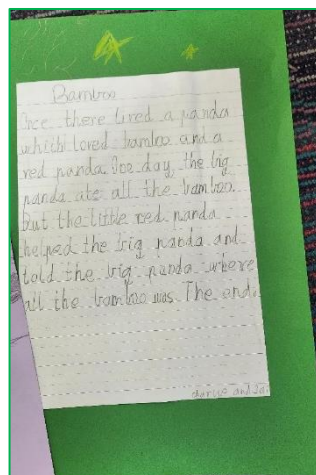 Bamboo
Oce there lived a panda
which loved bamboo and a
red panda. Oce day the big
panda ate all the bamboo.
But the little red panda
helped the big panda and
told the big panda where
all the bamboo was. The end.
and